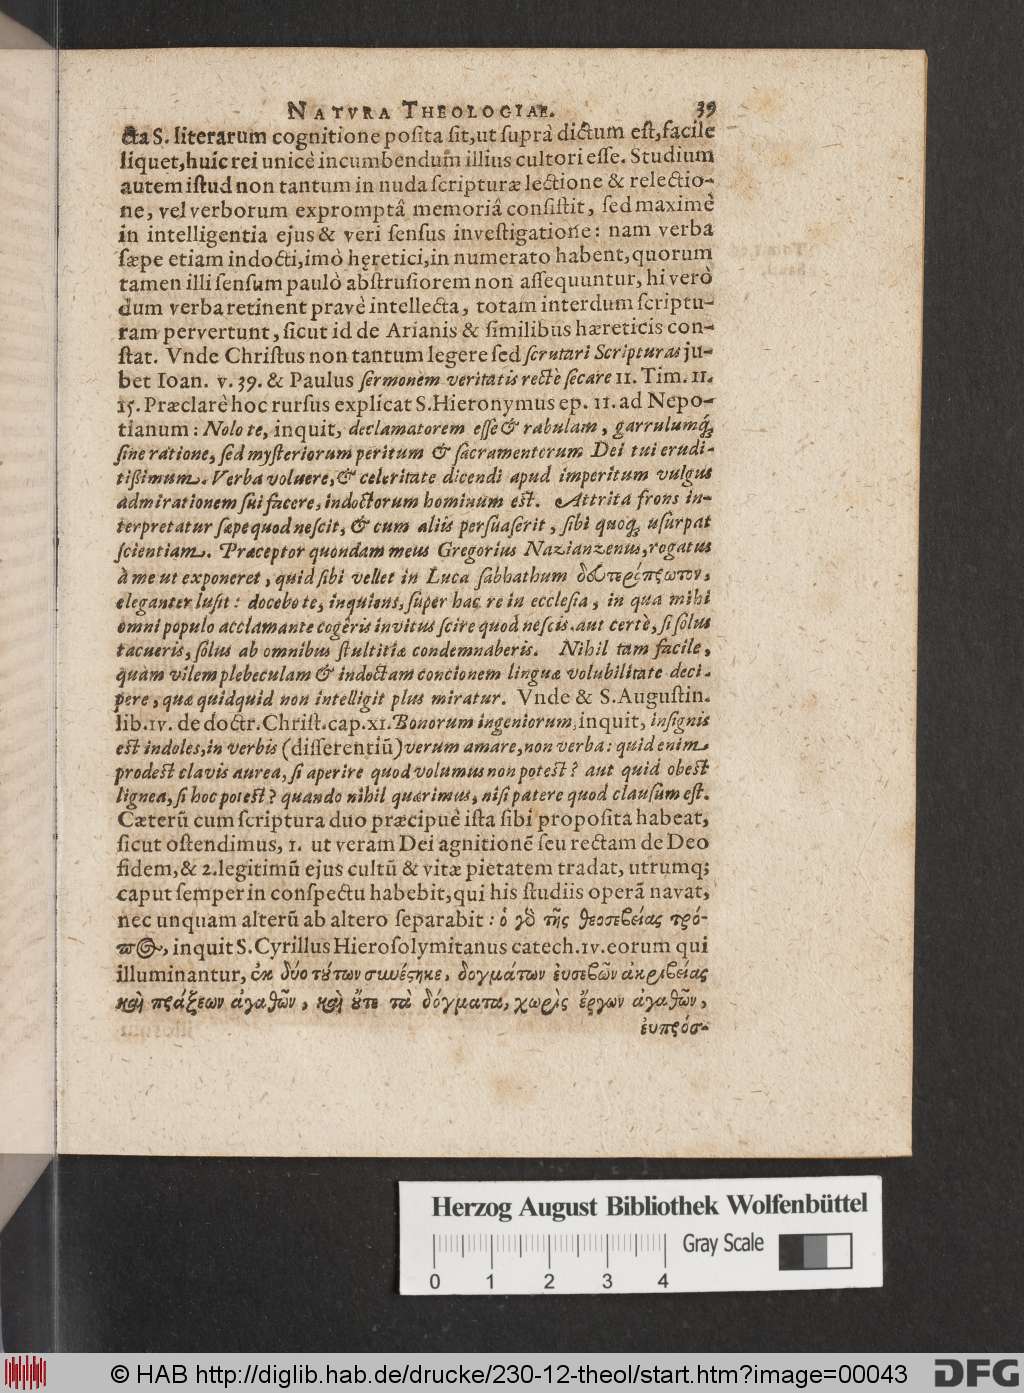 NATVRA THEOLOGIAE. 39
cta S. literarum cognitione posita sit, ut suprà dictum est, facilè
liquet, huic rei unicè incumbendum illius cultori esse. Studium
autem istud non tantum in nuda scripturæ lectione & relectio-
ne, vel verborum expromptâ memoriâ consistit, sed maximè
in intelligentia ejus & veri sensus investigatione: nam verba
sæpe etiam indocti, imò hęretici, in numerato habent, quorum
tamen illi sensum paulò abstrusiorem non assequuntur, hi verò
dum verba retinent pravè intellecta, totam interdum scriptu-
ram pervertunt, sicut id de Arianis & similibus hæreticis con-
stat. Vnde Christus non tantum legere sed scrutari Scripturas ju-
bet Ioan. v. 39. & Paulus sermonem veritatis rectè secare II. Tim. II.
15. Præclarè hoc rursus explicat S. Hieronymus ep. 11. ad Nepo-
tianum: Nolo te, inquit, declamatorem esse & rabulam, garrulumq́;
sine ratione, sed mysteriorum peritum & sacramentorum Dei tui erudi-
tißimum. Verba voluere, & celeritate dicendi apud imperitum vulgus
admirationem sui facere, indoctorum hominum est. Attrita frons in-
terpretatur sæpe quod nescit, & cum aliis persuaserit, sibi quoq; usurpat
scientiam. Præceptor quondam meus Gregorius Nazianzenus, rogatus
à me ut exponeret, quid sibi vellet in Luca sabbathum δευτερόπρωτον,
eleganter lusit: docebo te, inquiens, super hac re in ecclesia, in qua mihi
omni populo acclamante cogêris invitus scire quod nescis. aut certè, si solus
tacueris, solus ab omnibus stultitiæ condemnaberis. Nihil tam facile,
quàm vilem plebeculam & indoctam concionem linguæ volubilitate deci-
pere, quæ quidquid non intelligit plus miratur. Vnde & S. Augustin.
lib. IV. de doctr. Christ. cap. XI. Bonorum ingeniorum, inquit, insignis
est indoles, in verbis (disserentiū) verum amare, non verba: quid enim
prodest clavis aurea, si aperire quod volumus non potest? aut quid obest
lignea, si hoc potest? quando nihil quærimus, nisi patere quod clausum est.
Cæterū cum scriptura duo præcipuè ista sibi proposita habeat,
sicut ostendimus, 1. ut veram Dei agnitionē seu rectam de Deo
fidem, & 2. legitimū ejus cultū & vitæ pietatem tradat, utrumq;
caput semper in conspectu habebit, qui his studiis operā navat,
nec unquam alterū ab altero separabit: ὁ γὸ τῆς θεοσεβείας τρό-
πος, inquit S. Cyrillus Hierosolymitanus catech. IV. eorum qui
illuminantur, ἐκ δύο τούτων συνέστηκε, δογμάτων ἐυσεβῶν ἀκριβείας
καὶ πράξεων ἀγαθῶν, καὶ οὔτε τὰ δόγματα, χωρὶς ἔργων ἀγαθῶν,
ἐυπρόσ-
Herzog August Bibliothek Wolfenbüttel
Gray Scale
0 1 2 3 4
© HAB http://diglib.hab.de/drucke/230-12-theol/start.htm?image=00043
DFG